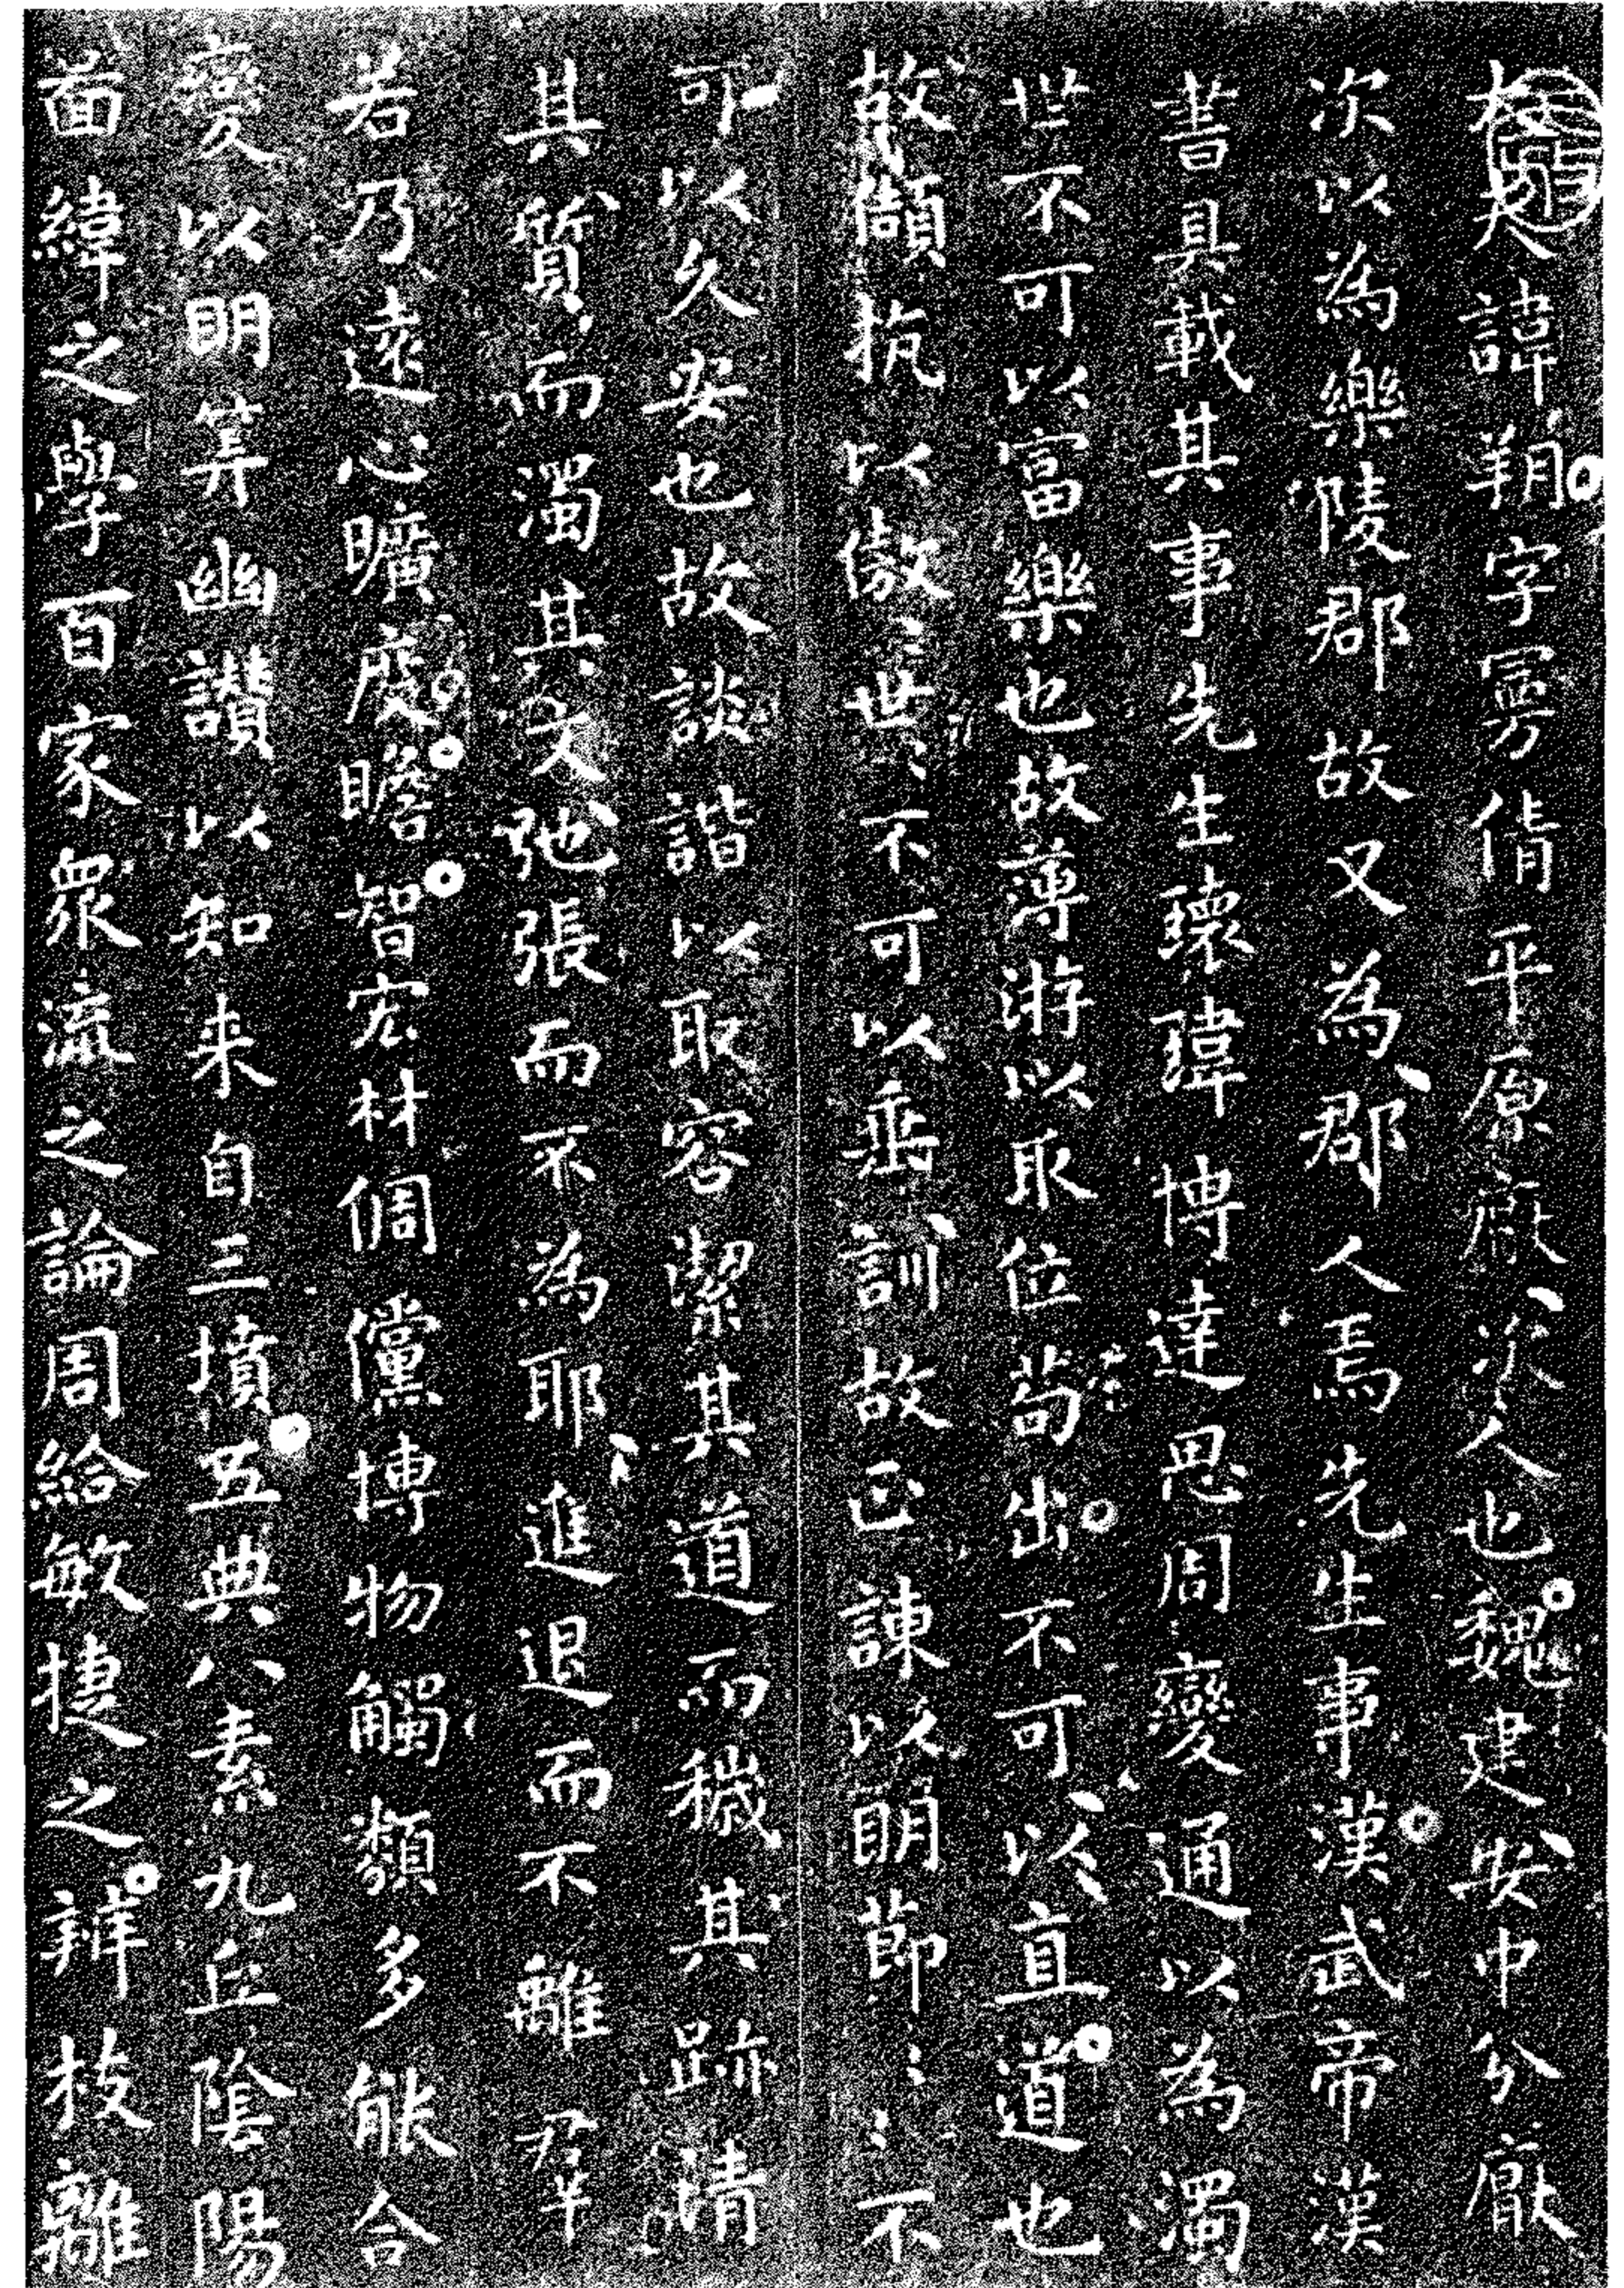 大夫諱朔字曼倩平原厭次人也魏建安中分厭
次以為樂陵郡故又為郡人焉先生事漢武帝漢
書具載其事先生瓌瑋博達思周變通以為濁
世不可以富樂也故薄游以取位苟出不可以直道也
故頡抗以傲世世不可以垂訓故正諫以明節節不
可以久安也故談諧以取容潔其道而穢其跡清
其質而濁其文弛張而不為耶進退而不離群
若乃遠心曠度瞻智宏材倜儻博物觸類多能合
變以明筭幽讃以知来自三墳五典八素九丘陰陽
啚緯之學百家衆流之論周給敏捷之辨枝離